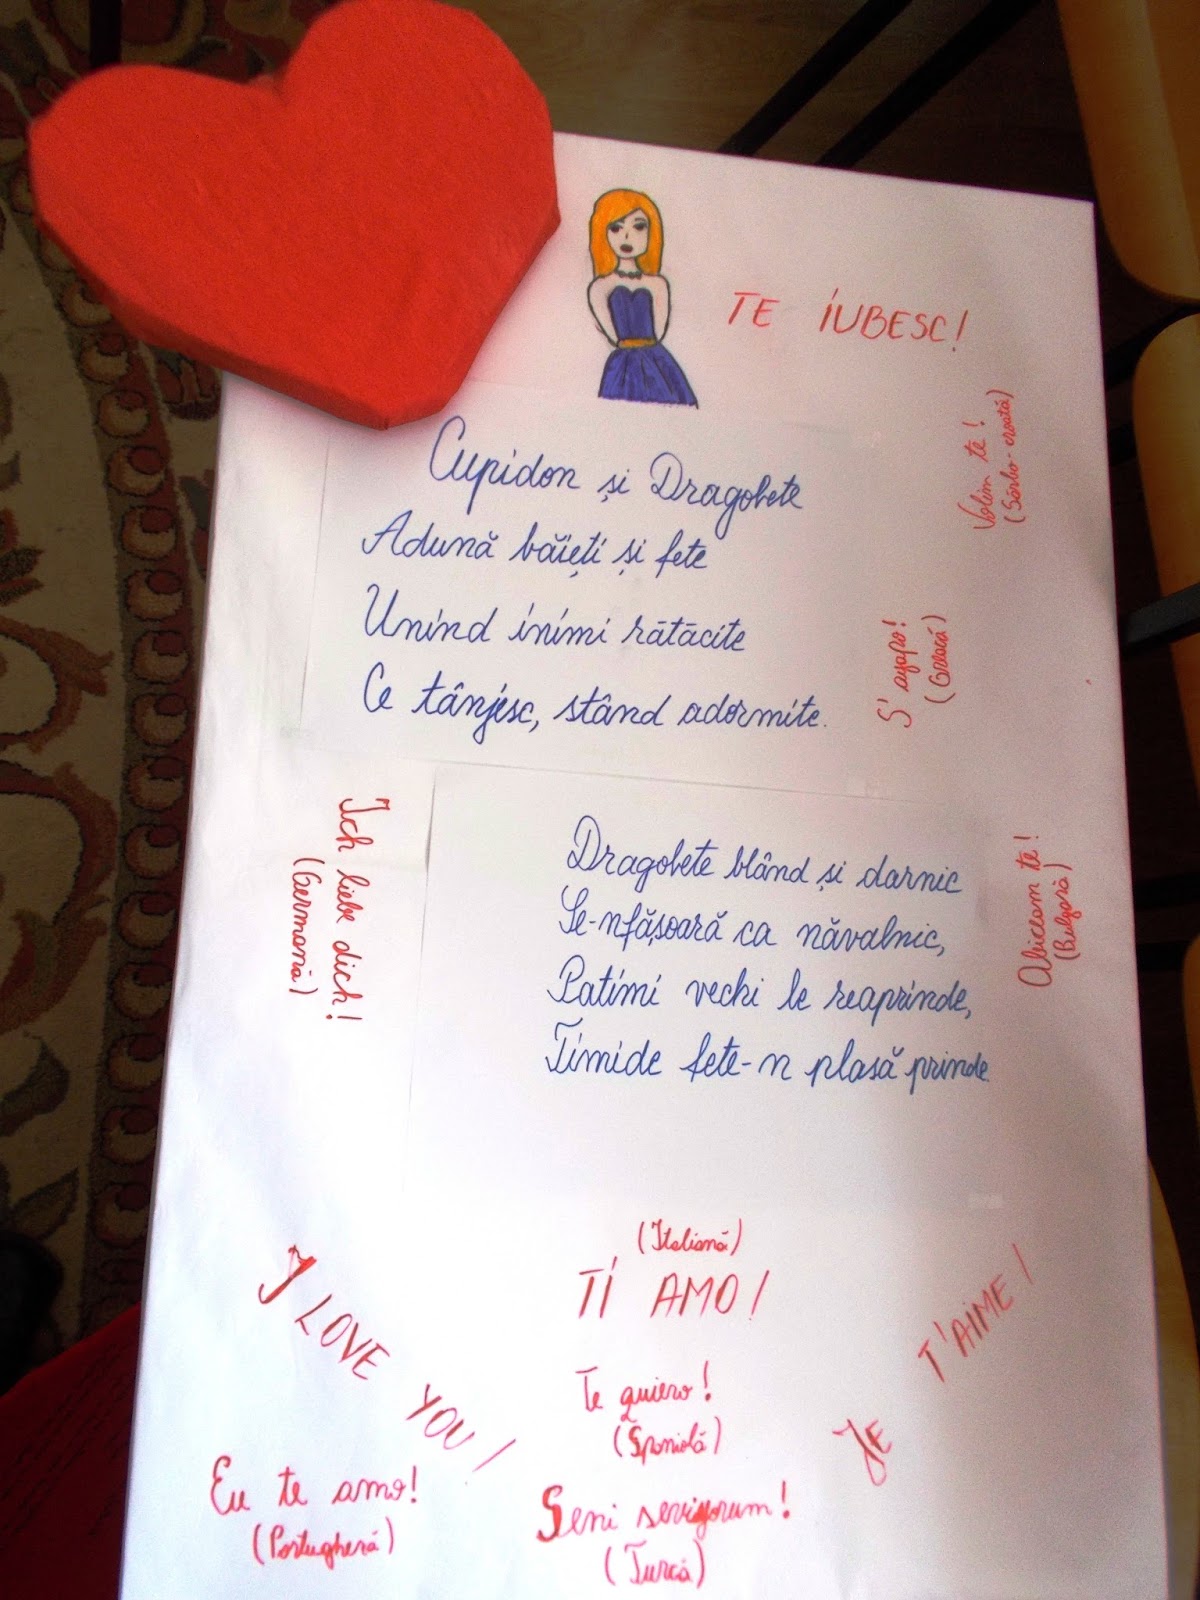 TE IUBESC!
Volim te!
(Sârbo-croată)
Cupidon și Dragobete
Adună băieți și fete
Unind inimi rătăcite
Ce tânjesc, stând adormite.
S' agapo!
(Greacă)
Ich liebe dich!
(Germană)
Dragobete blând și darnic
Se-nfășoară ca năvalnic,
Patimi vechi le reaprinde,
Timide fete-n plasă prinde.
Abiciam te!
(Bulgară)
I LOVE YOU!
(Italiană)
TI AMO!
JE T'AIME!
Te quiero!
(Spaniolă)
Eu te amo!
(Portugheză)
Seni seviyorum!
(Turcă)